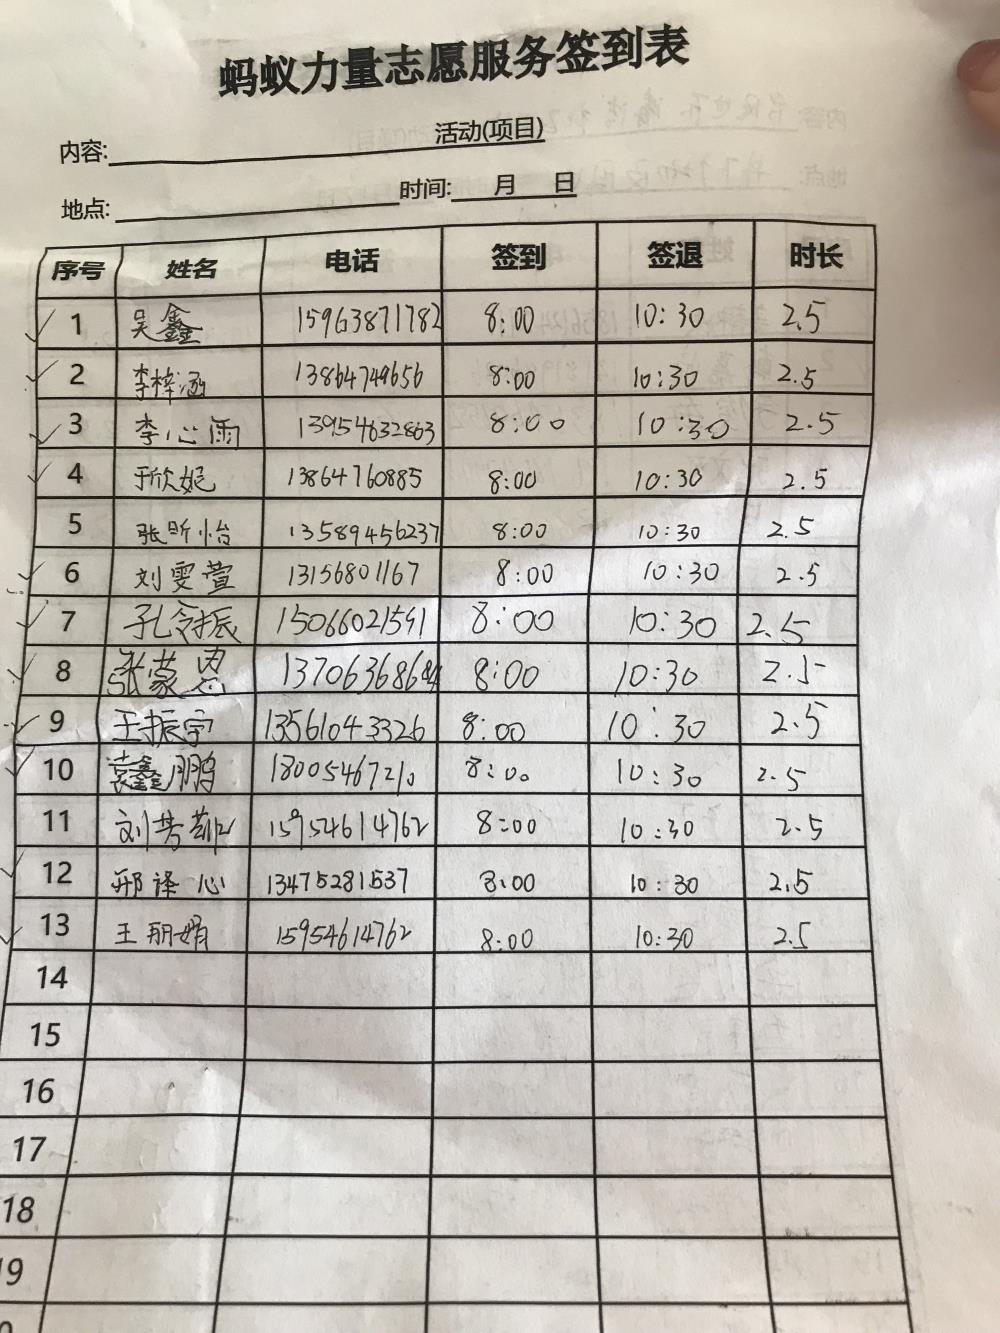 蚂蚁力量志愿服务签到表
内容: 活动(项目)
地点: 时间: 月 日
序号 姓名 电话 签到 签退 时长
1 吴鑫 15963871782 8:00 10:30 2.5
2 李梓涵 13864749656 8:00 10:30 2.5
3 李心雨 13954632863 8:00 10:30 2.5
4 于欣妮 13864760885 8:00 10:30 2.5
5 张昕怡 13589456237 8:00 10:30 2.5
6 刘雯萱 13156801167 8:00 10:30 2.5
7 孔令振 15066021591 8:00 10:30 2.5
8 张蒙恩 8:00 10:30 2.5
9 王振宇 13561043326 8:00 10:30 2.5
10 袁鑫鹏 18005467210 8:00 10:30 2.5
11 刘芳菲 15954614762 8:00 10:30 2.5
12 邢译心 13475281537 8:00 10:30 2.5
13 王丽娟 15954614762 8:00 10:30 2.5
14
15
16
17
18
19